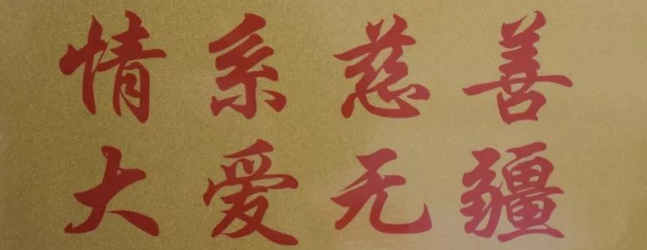 情系慈善
大爱无疆